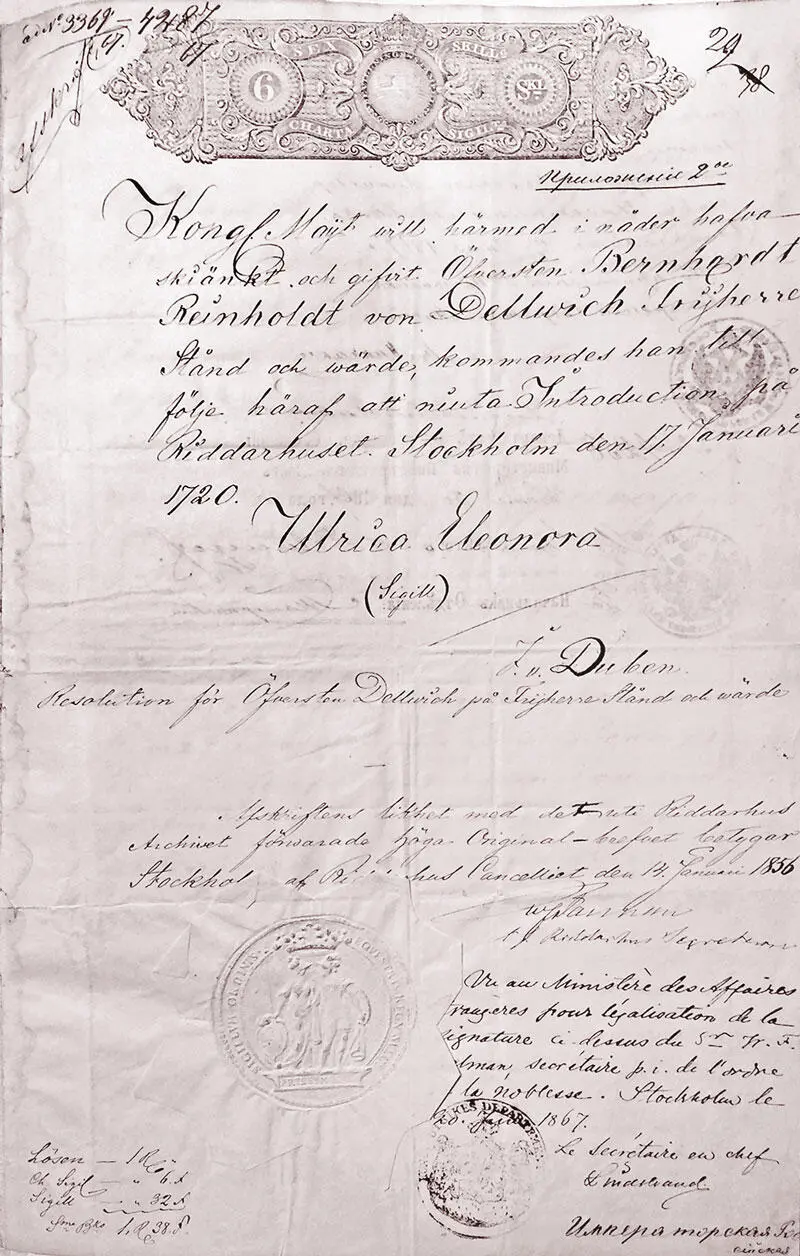 ad Nº 3369 – 4287
29
38
SEX SKILLS
6 SK.
CHARTA SIGILL
Приложеніе 2ое
Kongl. Mayt will härmed i nåder hafva
skiänkt och gifvit Öfversten Bernhardt
Reinholdt von Dellwich Frijherre
Stånd och wärde, kommandes han till
följe häraf att niuta Introduction på
Riddarhuset. Stockholm den 17 Januari
1720.
Ulrica Eleonora
(Sigill)
J. v. Duben
Resolution för Öfversten Dellwich på Frijherre Stånd och wärde
Afskriftens likhet med det uti Riddarhus
Archivet förwarade höga Original-brefvet betygar
Stockhol af Ri hus Cancelliet den 14 Januari 1856
t. f. Riddarhus Secreterare
Vu au Ministère des Affaires
trangères pour légalisation de la
signature ci-dessus du Sr Fr. F.
lman, secrétaire p.i. de l'ordre
la noblesse. Stockholm le
20. 1867.
Le Secrétaire en chef
Lindstrand
Lösen – 1 R
Ch. Sigil – " 6 s
Sigill – " 32 s
Sma Bko 1. R. 38. s.
Императорская Рос
сійская